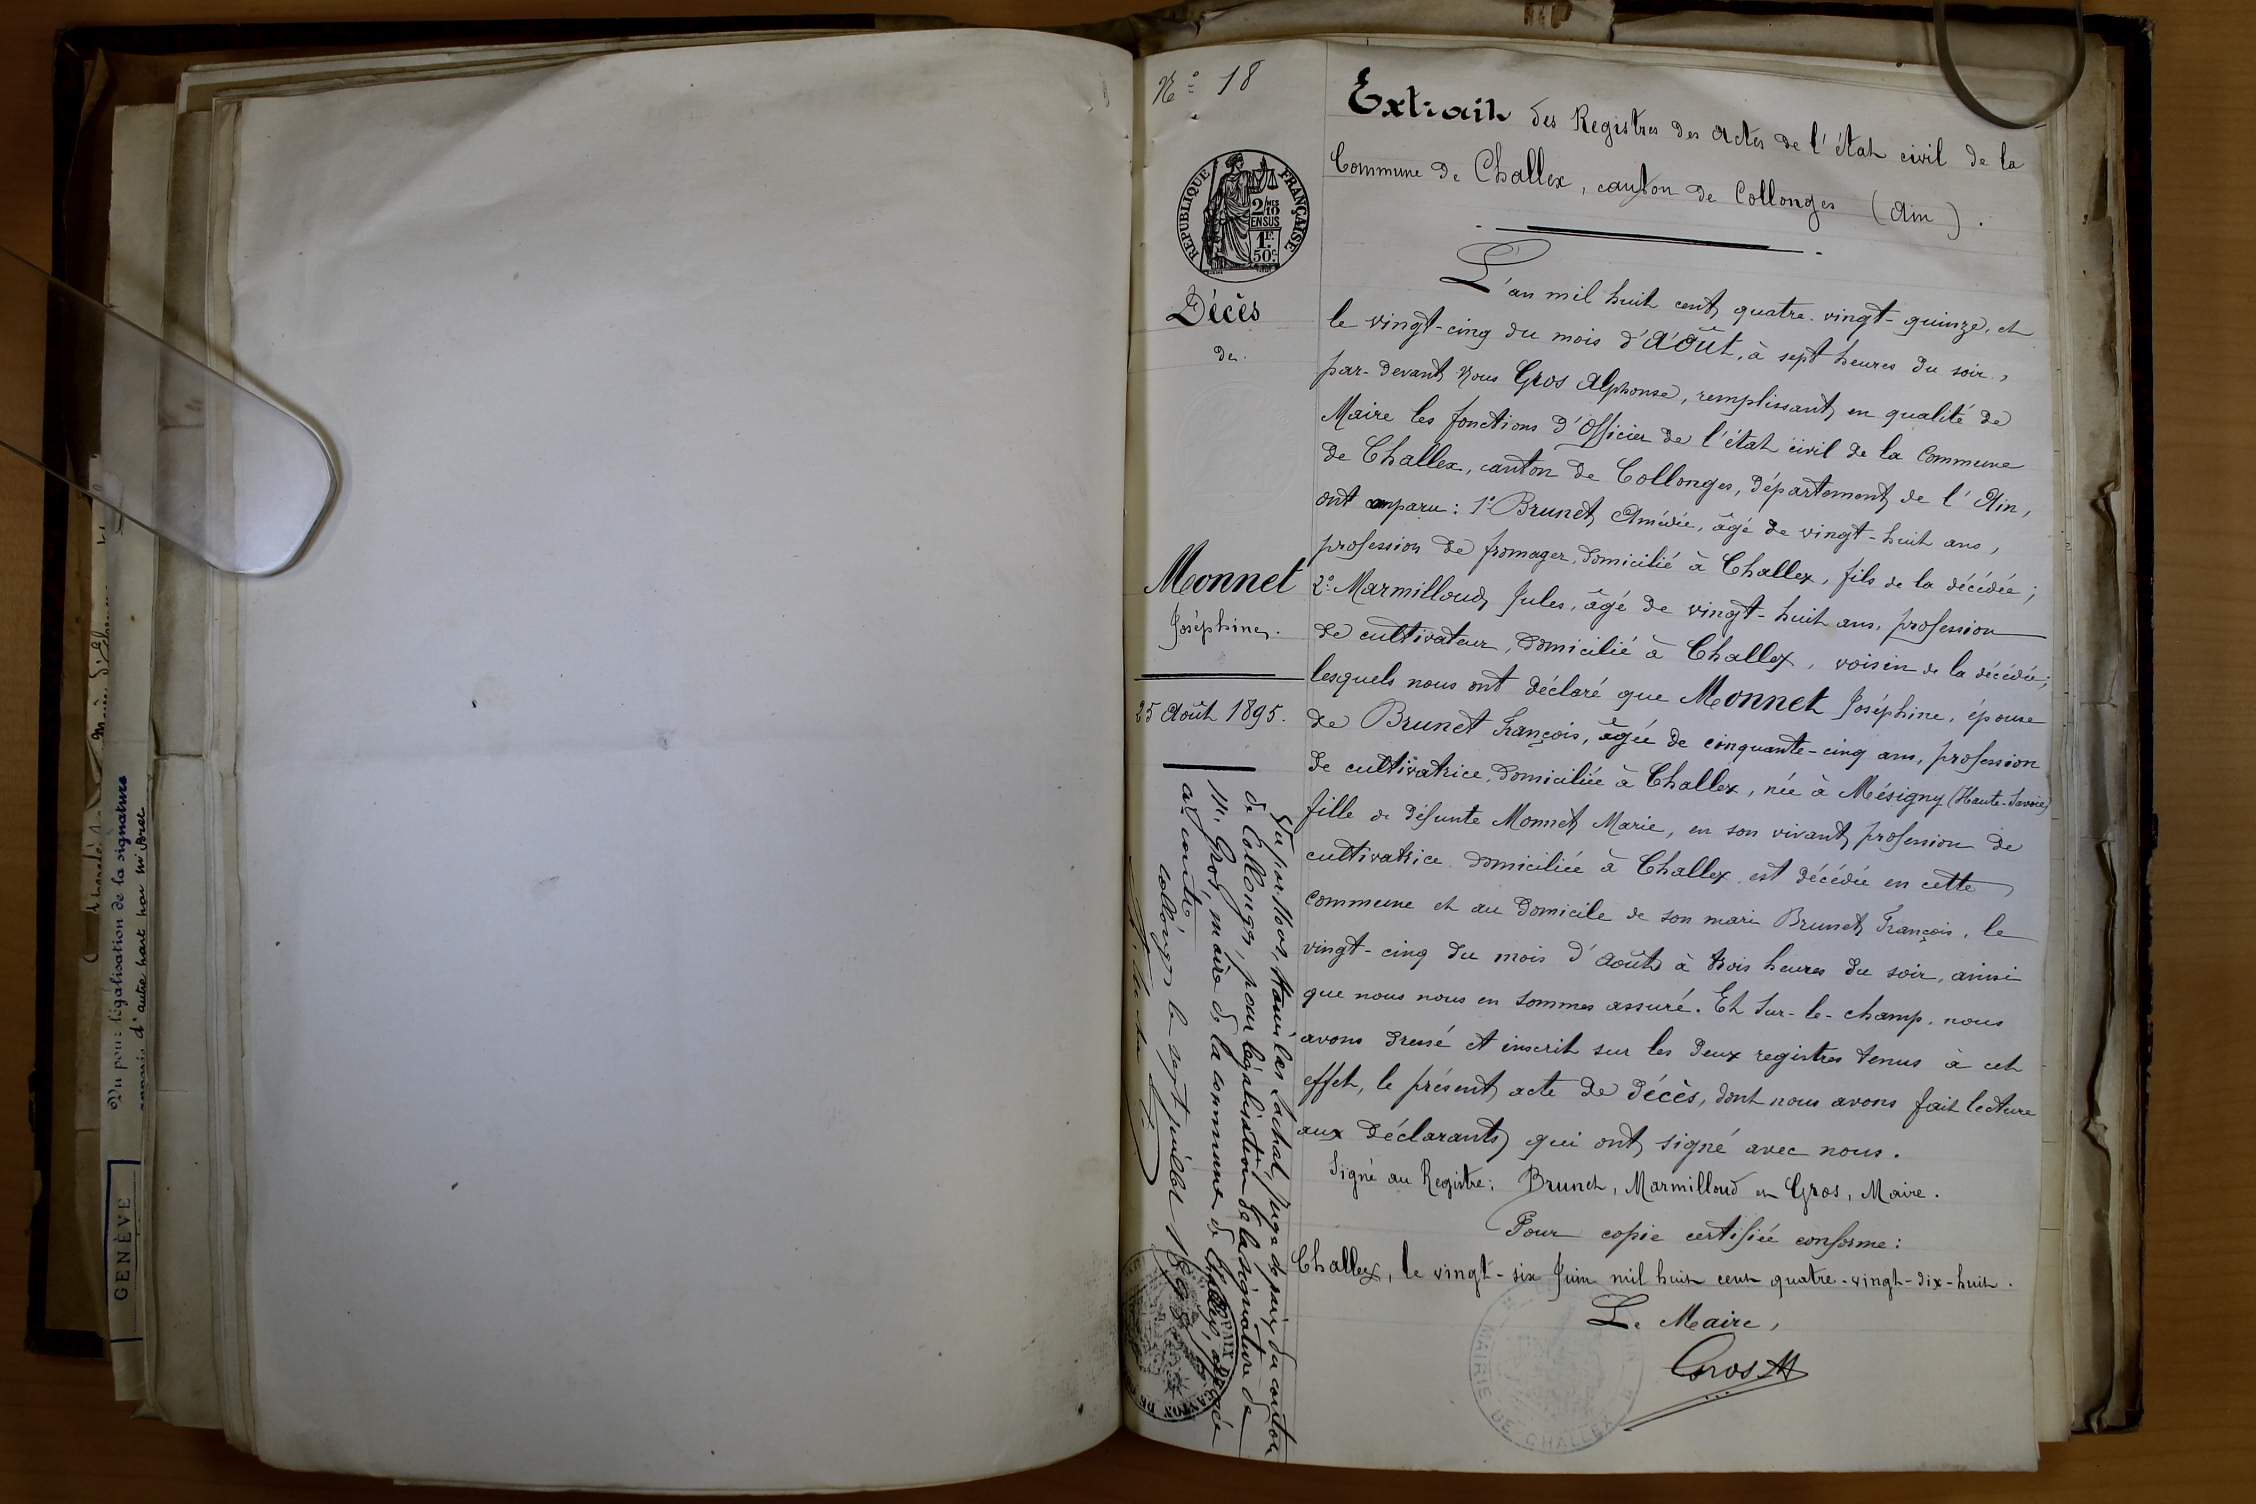 N° 18
REPUBLIQUE FRANÇAISE
2/10 MES
EN SUS
1F
50c
Décès
de
Monnet
Joséphine.
25 Août 1895.
Extrait des Registres des actes de l'état civil de la
Commune de Challex, canton de Collonges (Ain).
L'an mil huit cent quatre-vingt-quinze, et
le vingt-cinq du mois d'Août, à sept heures du soir,
par-devant Nous Gros Alphonse, remplissant en qualité de
Maire les fonctions d'Officier de l'état civil de la Commune
de Challex, canton de Collonges, département de l'Ain,
ont comparu: 1° Brunet Amédée, âgé de vingt-huit ans,
profession de fromager, domicilié à Challex, fils de la décédée;
2° Marmilloud Jules, âgé de vingt-huit ans, profession
de cultivateur, domicilié à Challex, voisin de la décédée;
lesquels nous ont déclaré que Monnet Joséphine, épouse
de Brunet François, âgée de cinquante-cinq ans, profession
de cultivatrice, domiciliée à Challex, née à Mésigny (Haute-Savoie)
fille de défunte Monnet Marie, en son vivant profession de
cultivatrice domiciliée à Challex est décédée en cette
commune et au domicile de son mari Brunet François, le
vingt-cinq du mois d'août à trois heures du soir, ainsi
que nous nous en sommes assuré. Et sur-le-champ, nous
avons dressé et inscrit sur les deux registres tenus à cet
effet, le présent acte de décès, dont nous avons fait lecture
aux déclarants qui ont signé avec nous.
Signé au Registre: Brunet, Marmilloud et Gros, Maire.
Pour copie certifiée conforme:
Challex, le vingt-six Juin mil huit cent quatre-vingt-dix-huit.
Le Maire,
Gros
MAIRIE DE CHALLEX
Vu par Nous, Lachat, Juge de paix du canton
de Collonges, pour légalisation de la signature de
M. Gros, maire de la commune de Challex, apposée
ci-contre
Collonges le sept juillet
Vu pour légalisation de la signature
d'autre part
GENÈVE